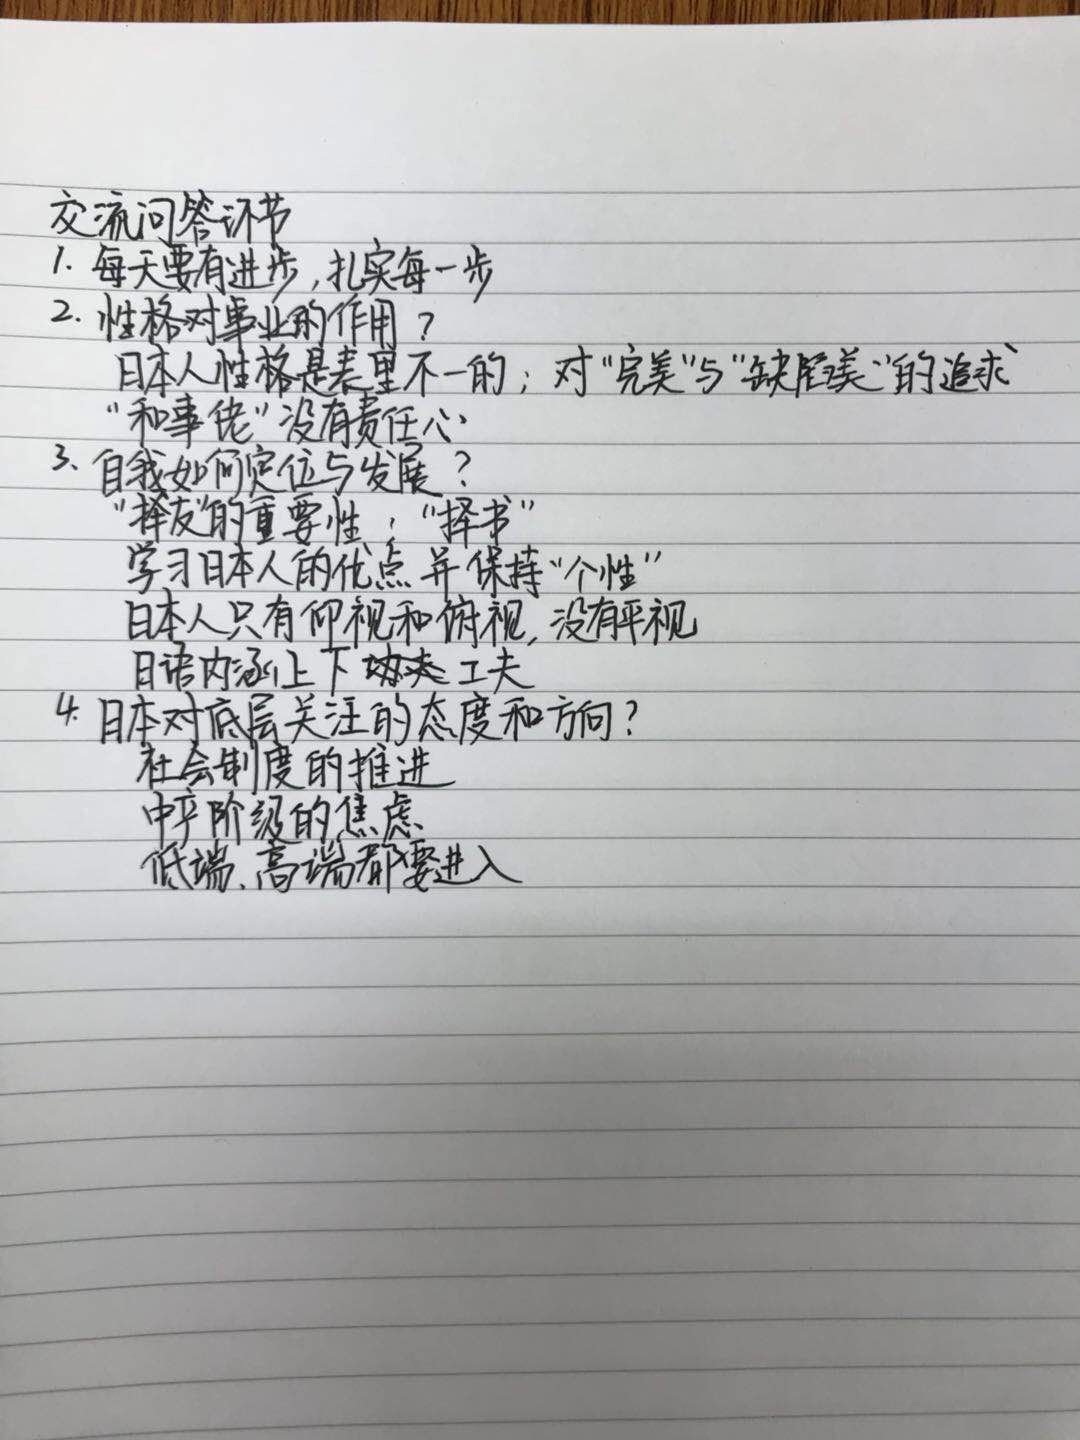 交流问答环节
1. 每天要有进步,扎实每一步
2. 性格对事业的作用?
日本人性格是表里不一的;对"完美"与"缺陷美"的追求
"和事佬"没有责任心
3. 自我如何定位与发展?
"择友"的重要性,"择书"
学习日本人的优点并保持"个性"
日本人只有仰视和俯视,没有平视
日语内涵上下工夫
4. 日本对底层关注的态度和方向?
社会制度的推进
中产阶级的焦虑
低端、高端都要进入